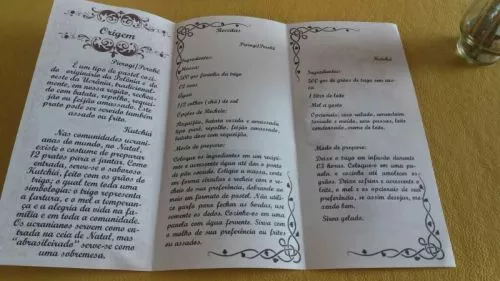 Origem
Pierogi/Perohê
É um tipo de pastel cozi-
do originário da Polônia e
da Ucrânia, tradicional-
mente, em nossa região, recheio
do com batata, repolho, requei-
jão ou feijão amassado. Este
prato pode ser servido também
assado ou frito.
Kutchiá
Nas comunidades ucrani-
anas do mundo, no Natal,
existe o costume de preparar
12 pratos para o jantar. Como
entrada, serve-se o saboroso
Kutchiá, feito com os grãos do
trigo; o qual tem toda uma
simbologia: o trigo representa
a fartura, e o mel a temperan-
ça e a alegria da vida na fa-
mília e em toda a comunidade.
Os ucranianos servem como en-
trada na ceia de Natal, mas
"abrasileirado" serve-se como
uma sobremesa.
Receitas
Pierogi/Perohê
Ingredientes:
Massa:
500 grs farinha de trigo
02 ovos
Água
1/2 colher (chá) de sal
Opções de Recheio:
Requeijão, batata cozida e amassada
tipo purê, repolho, feijão amassado,
batata doce com requeijão.
Modo de preparo:
Coloque os ingredientes em um recipi-
ente e acrescente água até dar o ponto
de pão caseiro. Estique a massa, corte
em forma circular e recheie com o re-
cheio de sua preferência, dobrando ao
meio em formato de pastel. Não utili-
ze garfo para fechar as bordas, use
somente os dedos. Cozinhe-os em uma
panela com água fervente. Sirva com
o molho de sua preferência ou fritos
ou assados.
Kutchiá
Ingredientes:
500 grs de grãos de trigo sem cas-
ca
1 litro de leite
Mel a gosto
Opcionais: coco ralado, amendoim
torrado e moído, uva passas, leite
condensado, creme de leite.
Modo de preparo:
Deixe o trigo em infusão durante
03 horas. Coloque-o em uma pa-
nela e cozinhe até amolecer os
grãos. Deixe esfriar e acrescente o
leite, o mel e os opcionais de sua
preferência, se assim desejar, me-
xendo bem.
Sirva gelado.